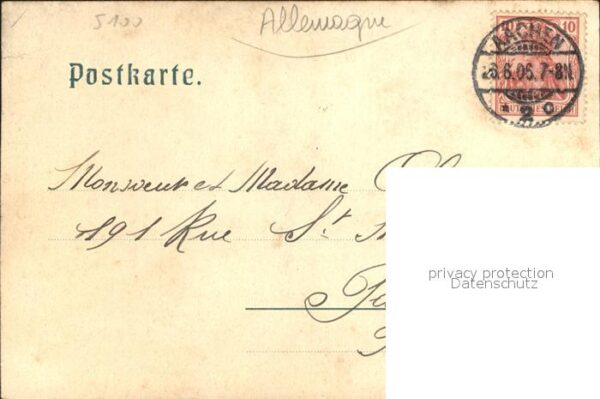 5100
Allemagne
10
AACHEN
26.6.06.7-8N.
* 2 c
Postkarte.
Monsieur et Madame
191 Rue St
privacy protection
Datenschutz